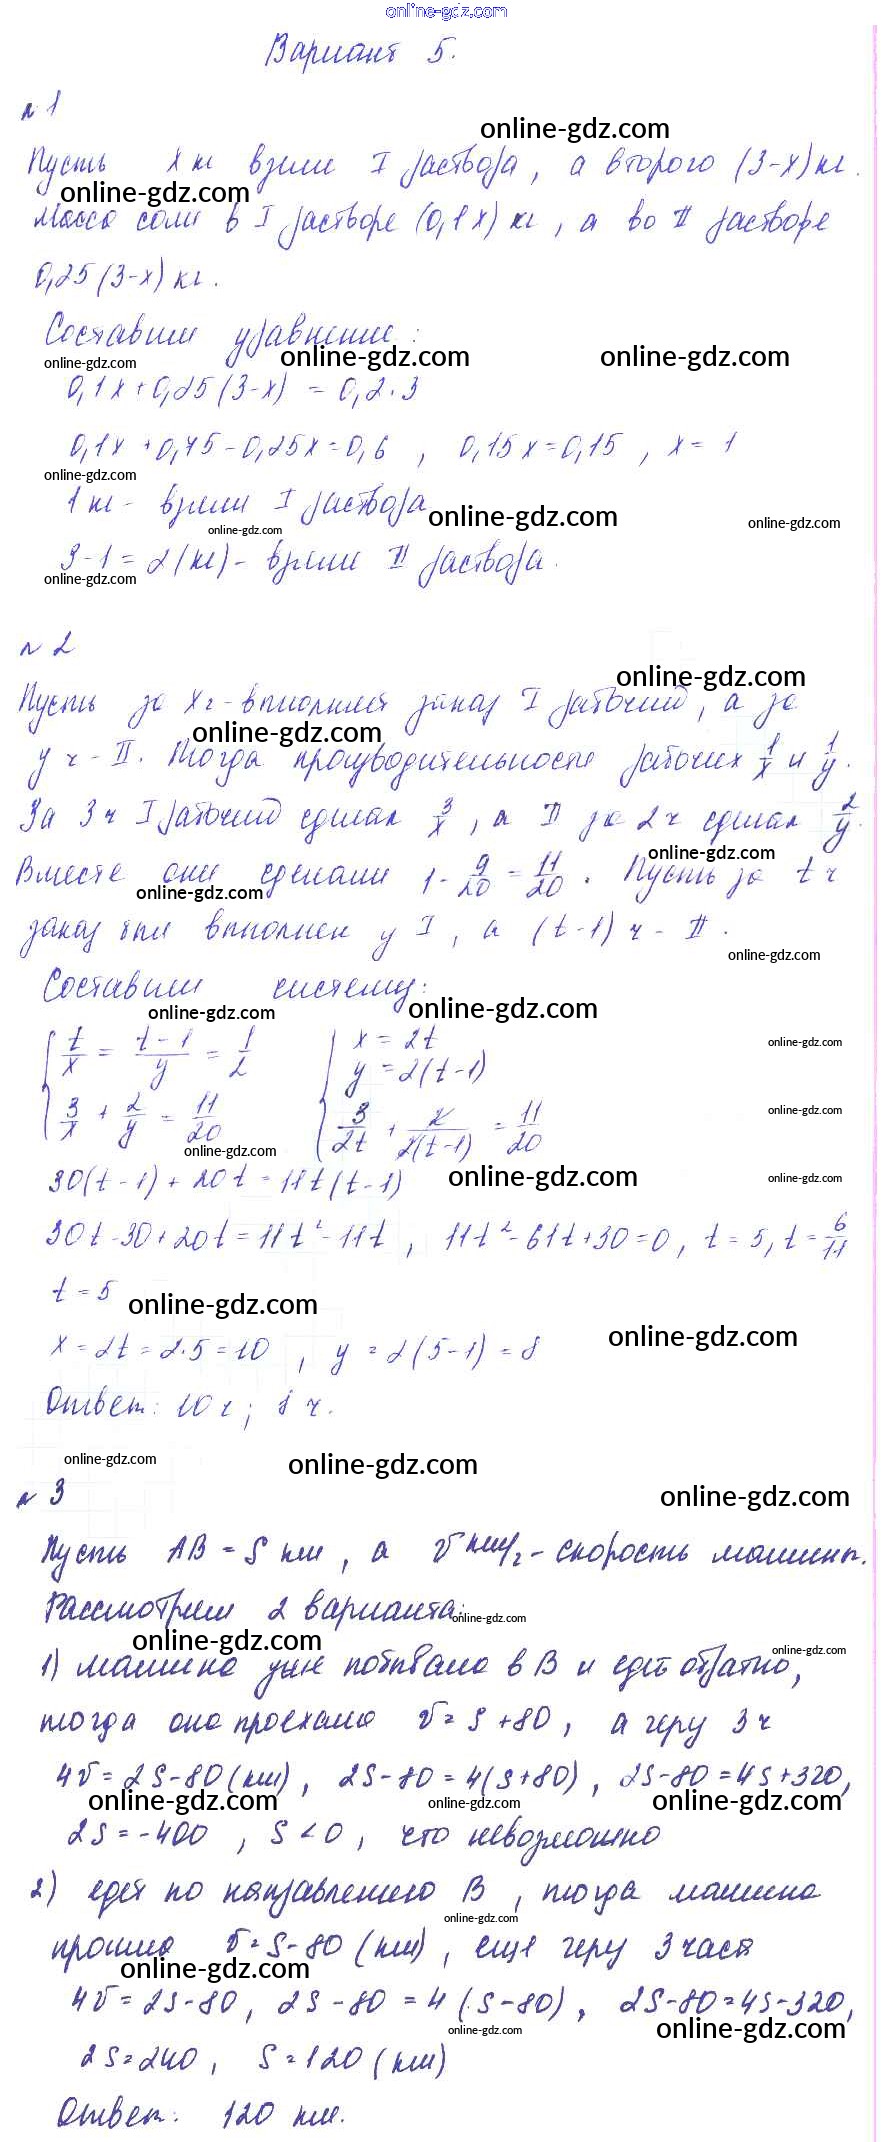 online-gdz.com
Вариант 5.
№1
online-gdz.com
Пусть x кг взяли I раствора, а второго (3-x) кг.
online-gdz.com
Масса соли в I растворе (0,1x) кг, а во II растворе
0,25(3-x) кг.
Составим уравнение:
online-gdz.com online-gdz.com online-gdz.com
0,1x+0,25(3-x) = 0,2·3
0,1x+0,75-0,25x=0,6, 0,15x=0,15, x=1
online-gdz.com
1 кг - взяли I раствора
online-gdz.com online-gdz.com
online-gdz.com
3-1=2(кг)- взяли II раствора.
online-gdz.com
№2
online-gdz.com
Пусть за x ч - выполнит заказ I рабочий, а за
online-gdz.com
y ч - II. Тогда производительности рабочих 1/x и 1/y.
За 3ч I рабочий сделал 3/x, а II за 2ч сделал 2/y.
online-gdz.com
Вместе они сделали 1-9/20=11/20. Пусть за t ч
online-gdz.com
заказ был выполнен у I, а (t-1) ч - II.
online-gdz.com
Составим систему:
online-gdz.com online-gdz.com
{ t/x = (t-1)/y = 1/2 { x=2t
online-gdz.com
y=2(t-1)
3/x + 2/y = 11/20 3/2t + 2/2(t-1) = 11/20
online-gdz.com
online-gdz.com
30(t-1)+20t=11t(t-1)
online-gdz.com online-gdz.com
30t-30+20t=11t²-11t, 11t²-61t+30=0, t=5, t=6/11
t=5
online-gdz.com
online-gdz.com
x=2t=2·5=10, y=2(5-1)=8
Ответ: 10ч; 8ч.
online-gdz.com online-gdz.com
№3
online-gdz.com
Пусть AB=S км, а v км/ч - скорость машины.
Рассмотрим 2 варианта:
online-gdz.com
online-gdz.com
1) машина уже побывала в B и едет обратно,
online-gdz.com
тогда она проехала v=S+80, а через 3ч
4v=2S-80(км), 2S-80=4(S+80), 2S-80=4S+320,
online-gdz.com online-gdz.com online-gdz.com
2S=-400, S<0, что невозможно
2) едет по направлению B, тогда машина
online-gdz.com
прошла v=S-80 (км), еще через 3 часа
online-gdz.com
4v=2S-80, 2S-80=4(S-80), 2S-80=4S-320,
online-gdz.com online-gdz.com
2S=240, S=120(км)
Ответ: 120 км.